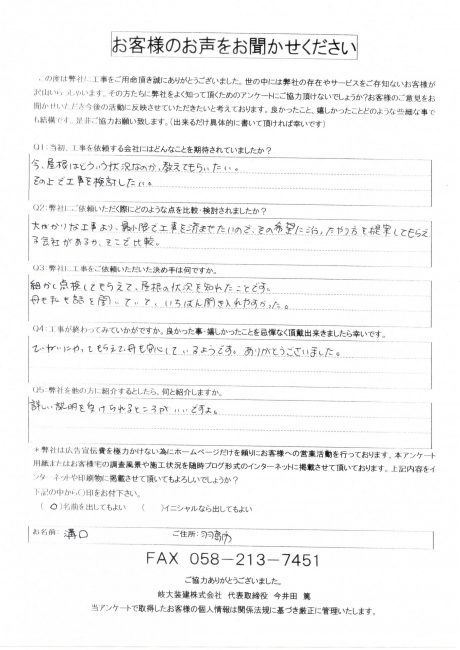 お客様のお声をお聞かせください
この度は弊社に工事をご用命頂き誠にありがとうございました。世の中には弊社の存在やサービスをご存知ないお客様が
沢山いらっしゃいます。その方たちに弊社をよく知って頂くためのアンケートにご協力頂けないでしょうか?お客様のご意見をお
聞かせいただき今後の活動に反映させていただきたいと考えております。良かったこと、嬉しかったことどのような些細な事で
も結構です。是非ご協力お願い致します。(出来るだけ具体的に書いて頂ければ幸いです)
Q1:当初、工事を依頼する会社にはどんなことを期待されていましたか?
今、屋根はどういう状況なのか、教えてもらいたい。
その上で工事を検討したい。
Q2:弊社にご依頼いただく際にどのような点を比較・検討されましたか?
大がかりな工事より、最小限で工事を済ませたいので、その希望に沿ったやり方を提案してもらえ
る会社があるか、そこで比較。
Q3:弊社に工事をご依頼いただいた決め手は何ですか。
細かく点検してもらえて、屋根の状況を知れたことです。
母も私も話を聞いていて、いちばん聞き入れやすかった。
Q4:工事が終わってみていかがですか。良かった事・嬉しかったことを忌憚なく頂戴出来きましたら幸いです。
ていねいにやってもらえて、母も安心しているようです。ありがとうございました。
Q5:弊社を他の方に紹介するとしたら、何と紹介しますか。
詳しい説明を受けられるところがいいですよ。
*弊社は広告宣伝費を極力かけない為にホームページだけを頼りにお客様への営業活動を行っております。本アンケート
用紙またはお客様宅の調査風景や施工状況を随時ブログ形式のインターネットに掲載させて頂いております。上記内容をイ
ンターネットや印刷物に掲載させて頂いてもよろしいでしょうか?
下記の中から〇印をお付下さい。
(〇)名前を出してもよい ( )イニシャルなら出してもよい
お名前: 溝口 ご住所: 羽島市
FAX 058-213-7451
ご協力ありがとうございました。
岐大装建株式会社 代表取締役 今井田 篤
当アンケートで取得したお客様の個人情報は関係法規に基づき厳正に管理いたします。